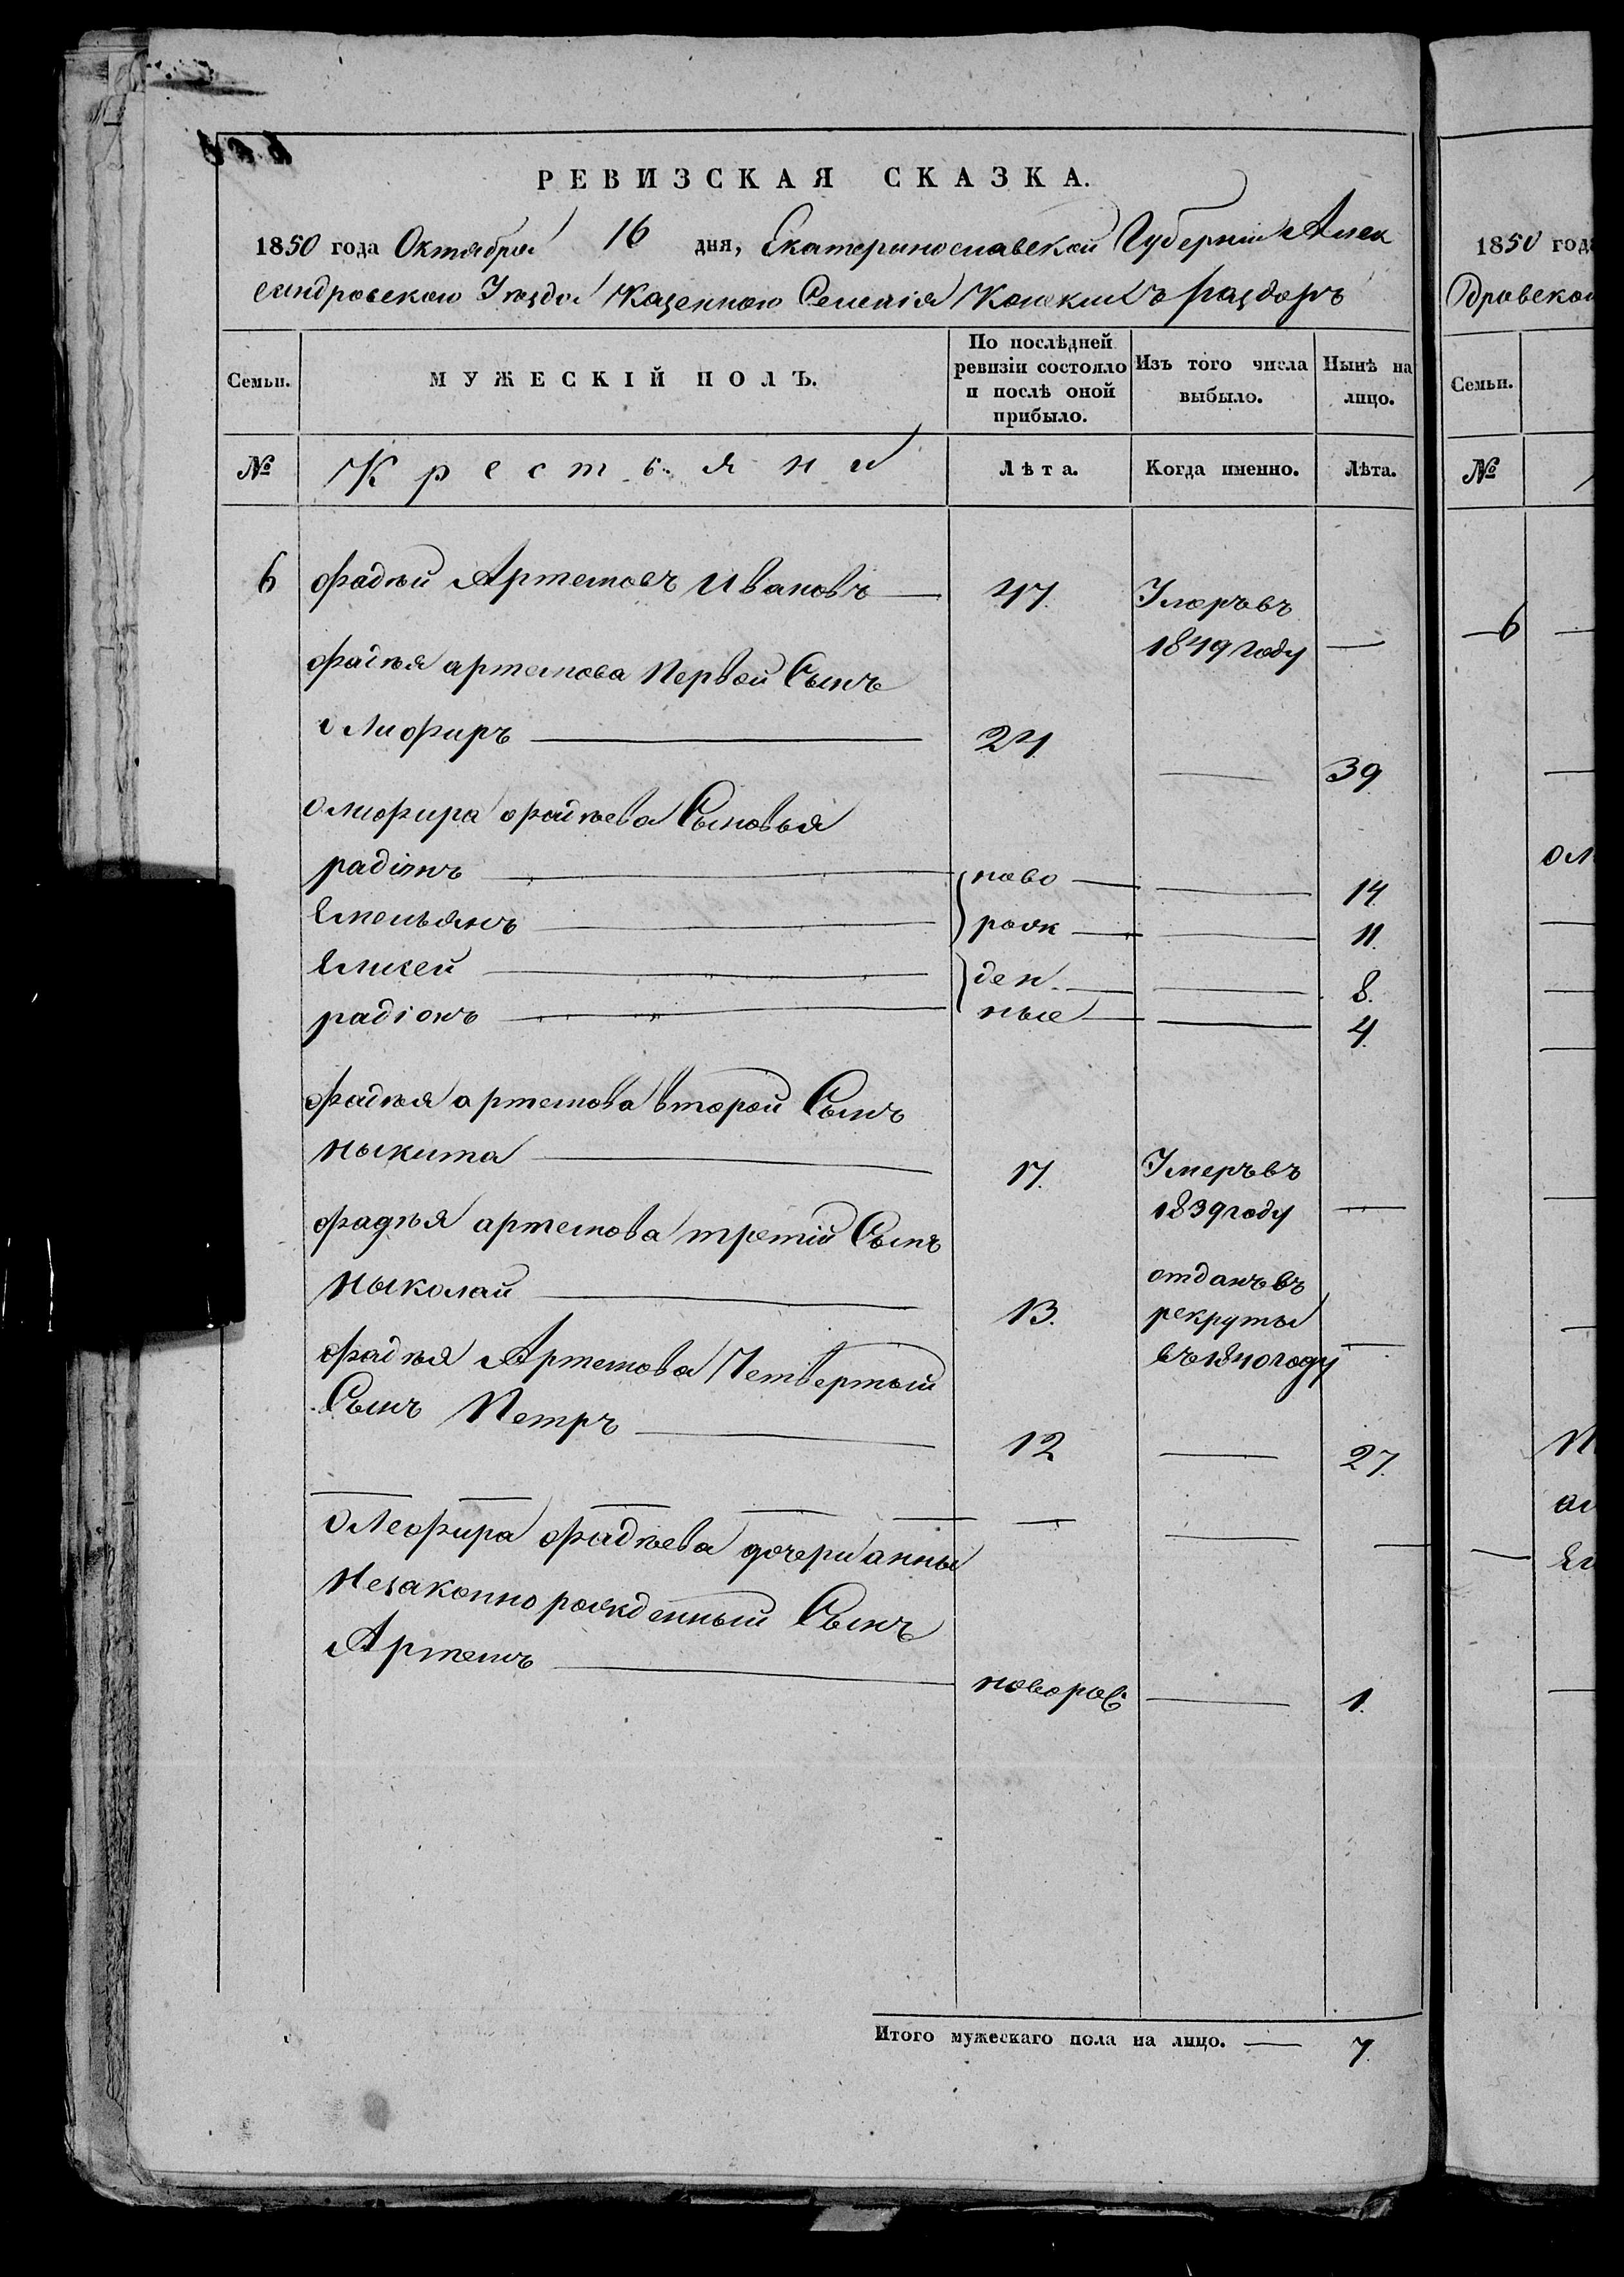 РЕВИЗСКАЯ СКАЗКА.
1850 года Октября 16 дня, Екатеринославской Губерніи Алек
сандровскаго Уѣзда Казеннаго Селенія Конскихъ раздоръ
Семьи.
МУЖЕСКІЙ ПОЛЪ.
По послѣдней ревизіи состояло и послѣ оной прибыло.
Изъ того числа выбыло.
Нынѣ на лицо.
№ Крестьяни Лѣта. Когда именно. Лѣта.
6 фадѣй Артемовъ Ивановъ — 47. Умеръ въ
1849 году —
фадѣя артемова Первой Сынъ
Олифиръ — 24. — 39
Олифира фадѣева Сыновья
радіонъ — ново — — 14
Емельянъ — рож — — 11.
Елисей — ден — — 8.
радіонъ — ные — — 4.
фадѣя артемова второй Сынъ
Ныкита — 17. Умеръ въ
1839 году —
фадѣя артемова третій Сынъ
Ныколай — 13. отданъ въ
рекруты
въ 1840 году —
фадѣя Артемова Четвертый
Сынъ Петръ — 12 — 27.
Олефира фадѣева дочери анны
Незаконно рожденный Сынъ
Артемъ — новорож — 1.
Итого мужескаго пола на лицо. — 7.
1850 года
дровской
Семьи.
№
6